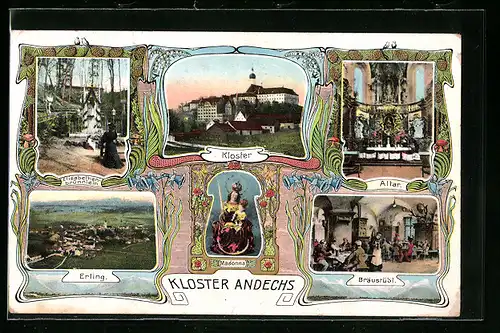 Elisabethen-
brünnlein.
Kloster
Altar.
Erling.
Madonna
Bräustübl.
KLOSTER ANDECHS